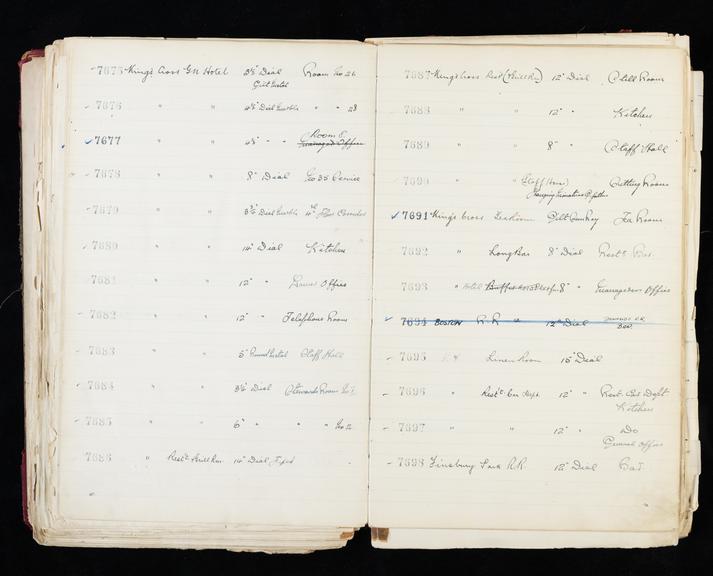 7675 King's Cross GN Hotel 3½" Dial Room No 26
Gilt Metal
7676 " " 4½" Dial Marble " " 28
7677 " " 4½" " " Room 5
Managers Office
7678 " " 8" Dial No 35 Service
7679 " " 3½" Dial Marble 4th Floor Corridor
7680 " " 14" Dial Kitchen
7681 " " 12" " Office
7682 " " 12" " Telephone Room
7683 " " 5" Round Metal Staff Hall
7684 " " 3½" Dial Stewards Room No 1
7685 " " 6" " " No 2
7686 " Restt Grill Rm 14" Dial Fixed
7687 King's Cross Rest (Grill Rm) 12" Dial Still Room
7688 " " 12" " Kitchen
7689 " " 8" " Staff Hall
7690 " " Staff Sitting Room
7691 King's Cross Tea Room Tea Room
7692 " Long Bar 8" Dial Restt Bar
7693 " Hotel Buffet 8" " Manageress Office
7694 BOSTON R.R 12" Dial
BAR.
7695 Linen Room 15" Dial
7696 " Restt Car Dept. 12" " Rest. Car Dept
Kitchen
7697 " " 12" " Do
General Office
7698 Finsbury Park R.R. 12" Dial Bar